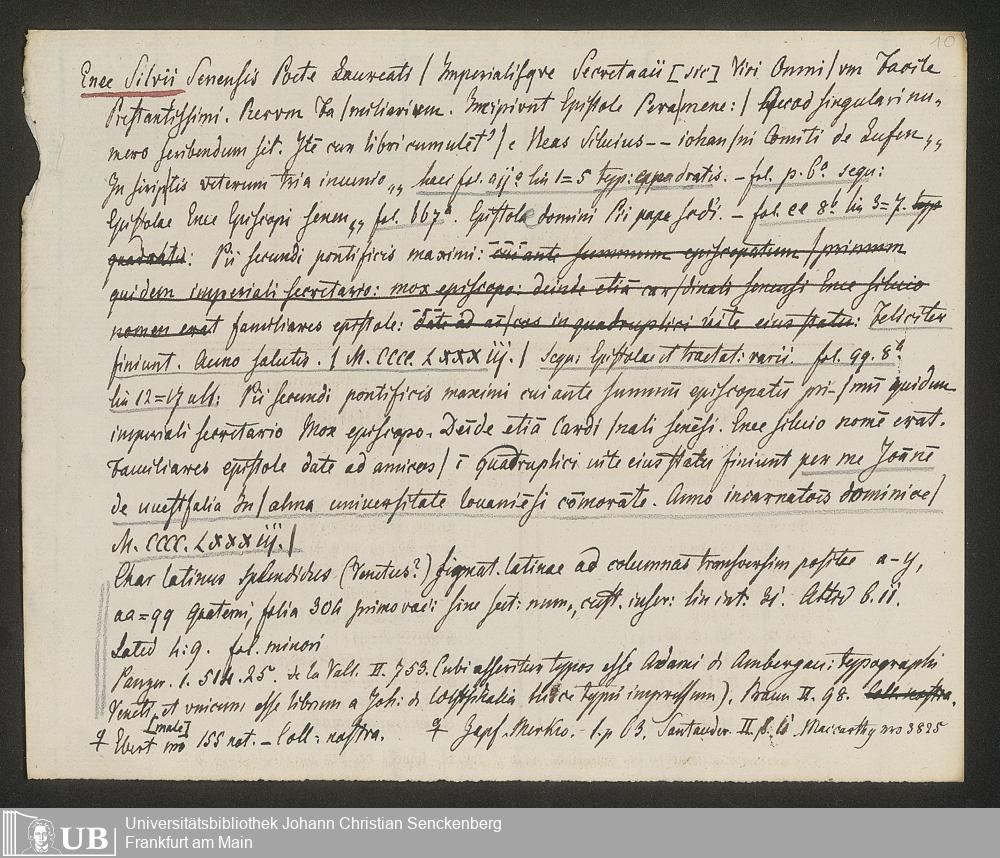 10
Enee Silvii Senensis Poete Laureati / Imperialisqve Secretaaii [sic] Viri Omni/vm Facile
Prestantissimi. Rervm Fa/miliarivm. Incipivnt Epistole Pera/mene:/ Qvod singulari nu„
mero scribendum sit. Itē cur libri cumulēt⁹/ e Neas Siluius -- iohan/ni Comiti de Lufen„„
In scriptis veterum tria inuenio„„ haec fol. aij a lin 1=5 typ: quadratis. - fol. p. 6a. sequ:
Epistolae Enee Episcopi Senen„„ fol. bb7a. Epistole domini Pii pape scdi. - fol. ee 8b lin 3=7. typ
quadratis: Pii secundi pontificis maximi: cui ante summum episcopatum / primum
quidem imperiali secretario: mox episcopo: deinde etiā car/dinali senensi Enee siluio
nomen erat familiares epistole: date ad ai/cos in quadruplici vite eius statu: Feliciter
finiunt. Anno salutis. / M. CCCC. LXXXiij. / sequ: Epistolae et tractat: varii. fol. qq. 8b.
lin 12=17 ult: Pii secundi pontificis maximi cui ante summū episcopatū pri-/mū quidem
imperiali secretario Mox episcopo. Deīde etiā Cardi/nali senēsi. Enee siluio nomē erat.
Familiares epistole date ad amicos/ ī quadruplici vite eius statu finiunt per me Joānē
de vuestfalia In/alma universitate louaniēsi cōmorāte. Anno incarnatōis dominice/
M. CCCC. LXXXiij. /
Char latinus splendidus (Venetus?) signat. latinae ad columnas transversim positae a-y,
aa=qq quaterni, folia 304 primo vac: sine sect: num., cust. inscr: lin int: 31. Altid 6.ii.
Latid 4:9. fol. minori
Panzer. 1. 514. 25. de la Vall. II. 753. (ubi asseritur typos esse Adami de Ambergau: typographi
Veneti, et unicum esse librum a Joh: de Westphalia hisce typis impressum). Braun II. 98. Coll: nostra.
Ebert [male] nro 155 not. - Coll: nostra. Zapf. Merkw. - 1. p 63. Santander. II. p. Maccarthy nro 3825
UB Universitätsbibliothek Johann Christian Senckenberg
Frankfurt am Main